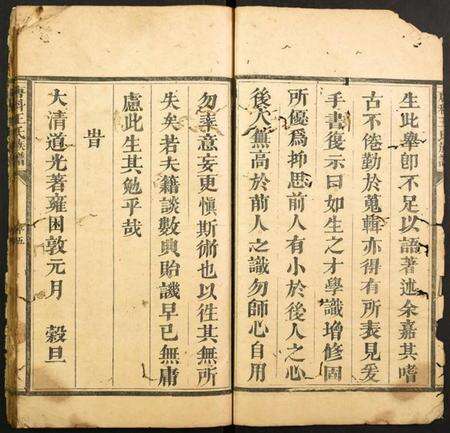 生此舉即不足以語著述余嘉其嗜
古不倦勤於蒐輯亦得有所表見爰
手書復示曰如生之才學識增修固
所優爲抑思前人有小於後人之心
後人無高於前人之識勿師心自用
勿率意妄更愼斯術也以徃其無所
失矣若夫籍談數典貽譏早已無庸
慮此生其勉乎哉
旹
大清道光著雍困敦元月 穀旦
王氏族譜